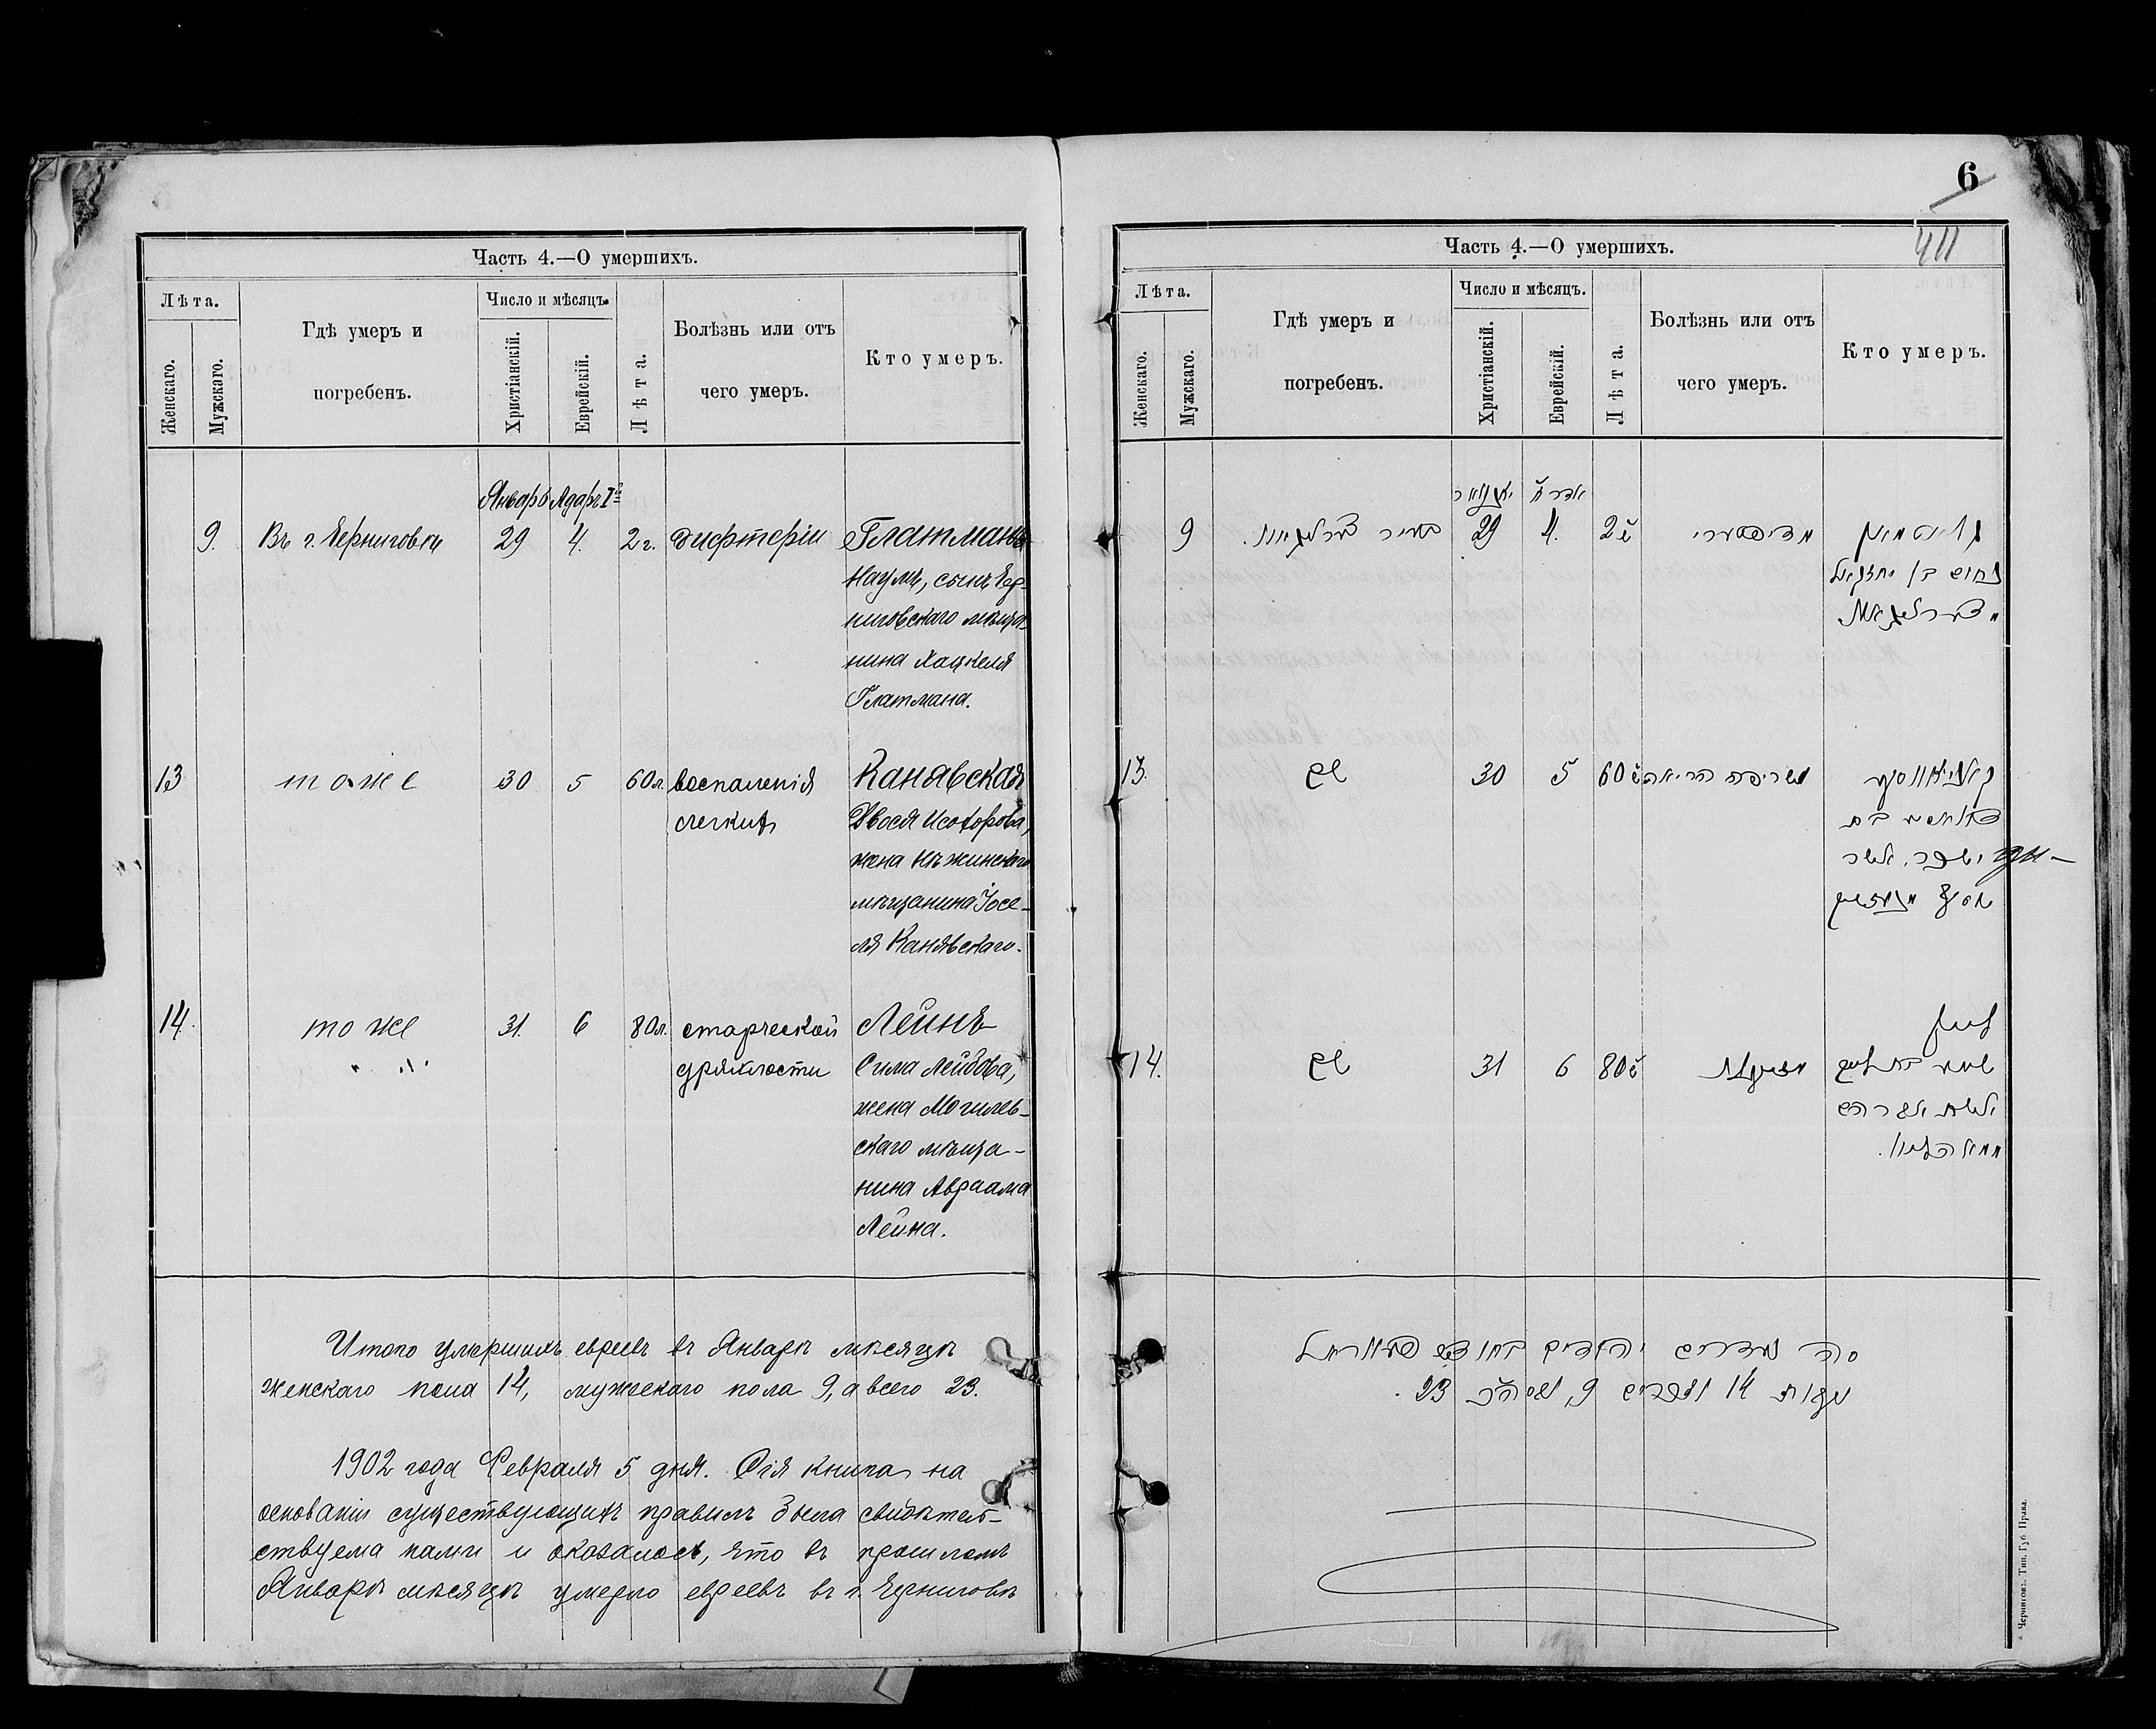 Часть 4.—О умершихъ.
Лѣта.
Женскаго.
Мужскаго.
Гдѣ умеръ и
погребенъ.
Число и мѣсяцъ.
Христіанскій.
Еврейскій.
Лѣта.
Болѣзнь или отъ
чего умеръ.
Кто умеръ.
Январь Адаръ I
9. Въ г. Черниговѣ 29 4. 2 г. дифтеріи Глатманъ
Наумъ, сынъ Чер-
ниговскаго мѣща-
нина Хацкеля
Глатмана.
13 тоже 30 5 60 л. воспаленія Канявская
легкихъ Двося Исохорова,
жена Нѣжинскаго
мѣщанина Іосе-
ля Канявскаго.
14. тоже 31. 6 80 л. старческой Лейнъ
дряхлости Сима Лейбова,
жена Могилев-
скаго мѣща-
нина Авраама
Лейна.
Итого умершихъ евреевъ въ Январѣ мѣсяцѣ
женскаго пола 14, мужскаго пола 9, а всего 23.
1902 года Февраля 5 дня. Сія книга на
основаніи существующихъ правилъ была свидѣтель-
ствуема нами и оказалось, что въ прошломъ
Январѣ мѣсяцѣ умерло евреевъ въ г. Черниговѣ
6
411
Часть 4.—О умершихъ.
Лѣта.
Женскаго.
Мужскаго.
Гдѣ умеръ и
погребенъ.
Число и мѣсяцъ.
Христіанскій.
Еврейскій.
Лѣта.
Болѣзнь или отъ
чего умеръ.
Кто умеръ.
יאנואר אדר א
9 בעיר 29 4. 2 גלאטמאן
נחום בן יחזקאל
13. שם 30 5 60 שריפה הריאה
14. שם 31 6 80 ליין
יהודים בחודש
14 9, 23.
Черниговъ. Тип. Губ. Правл.